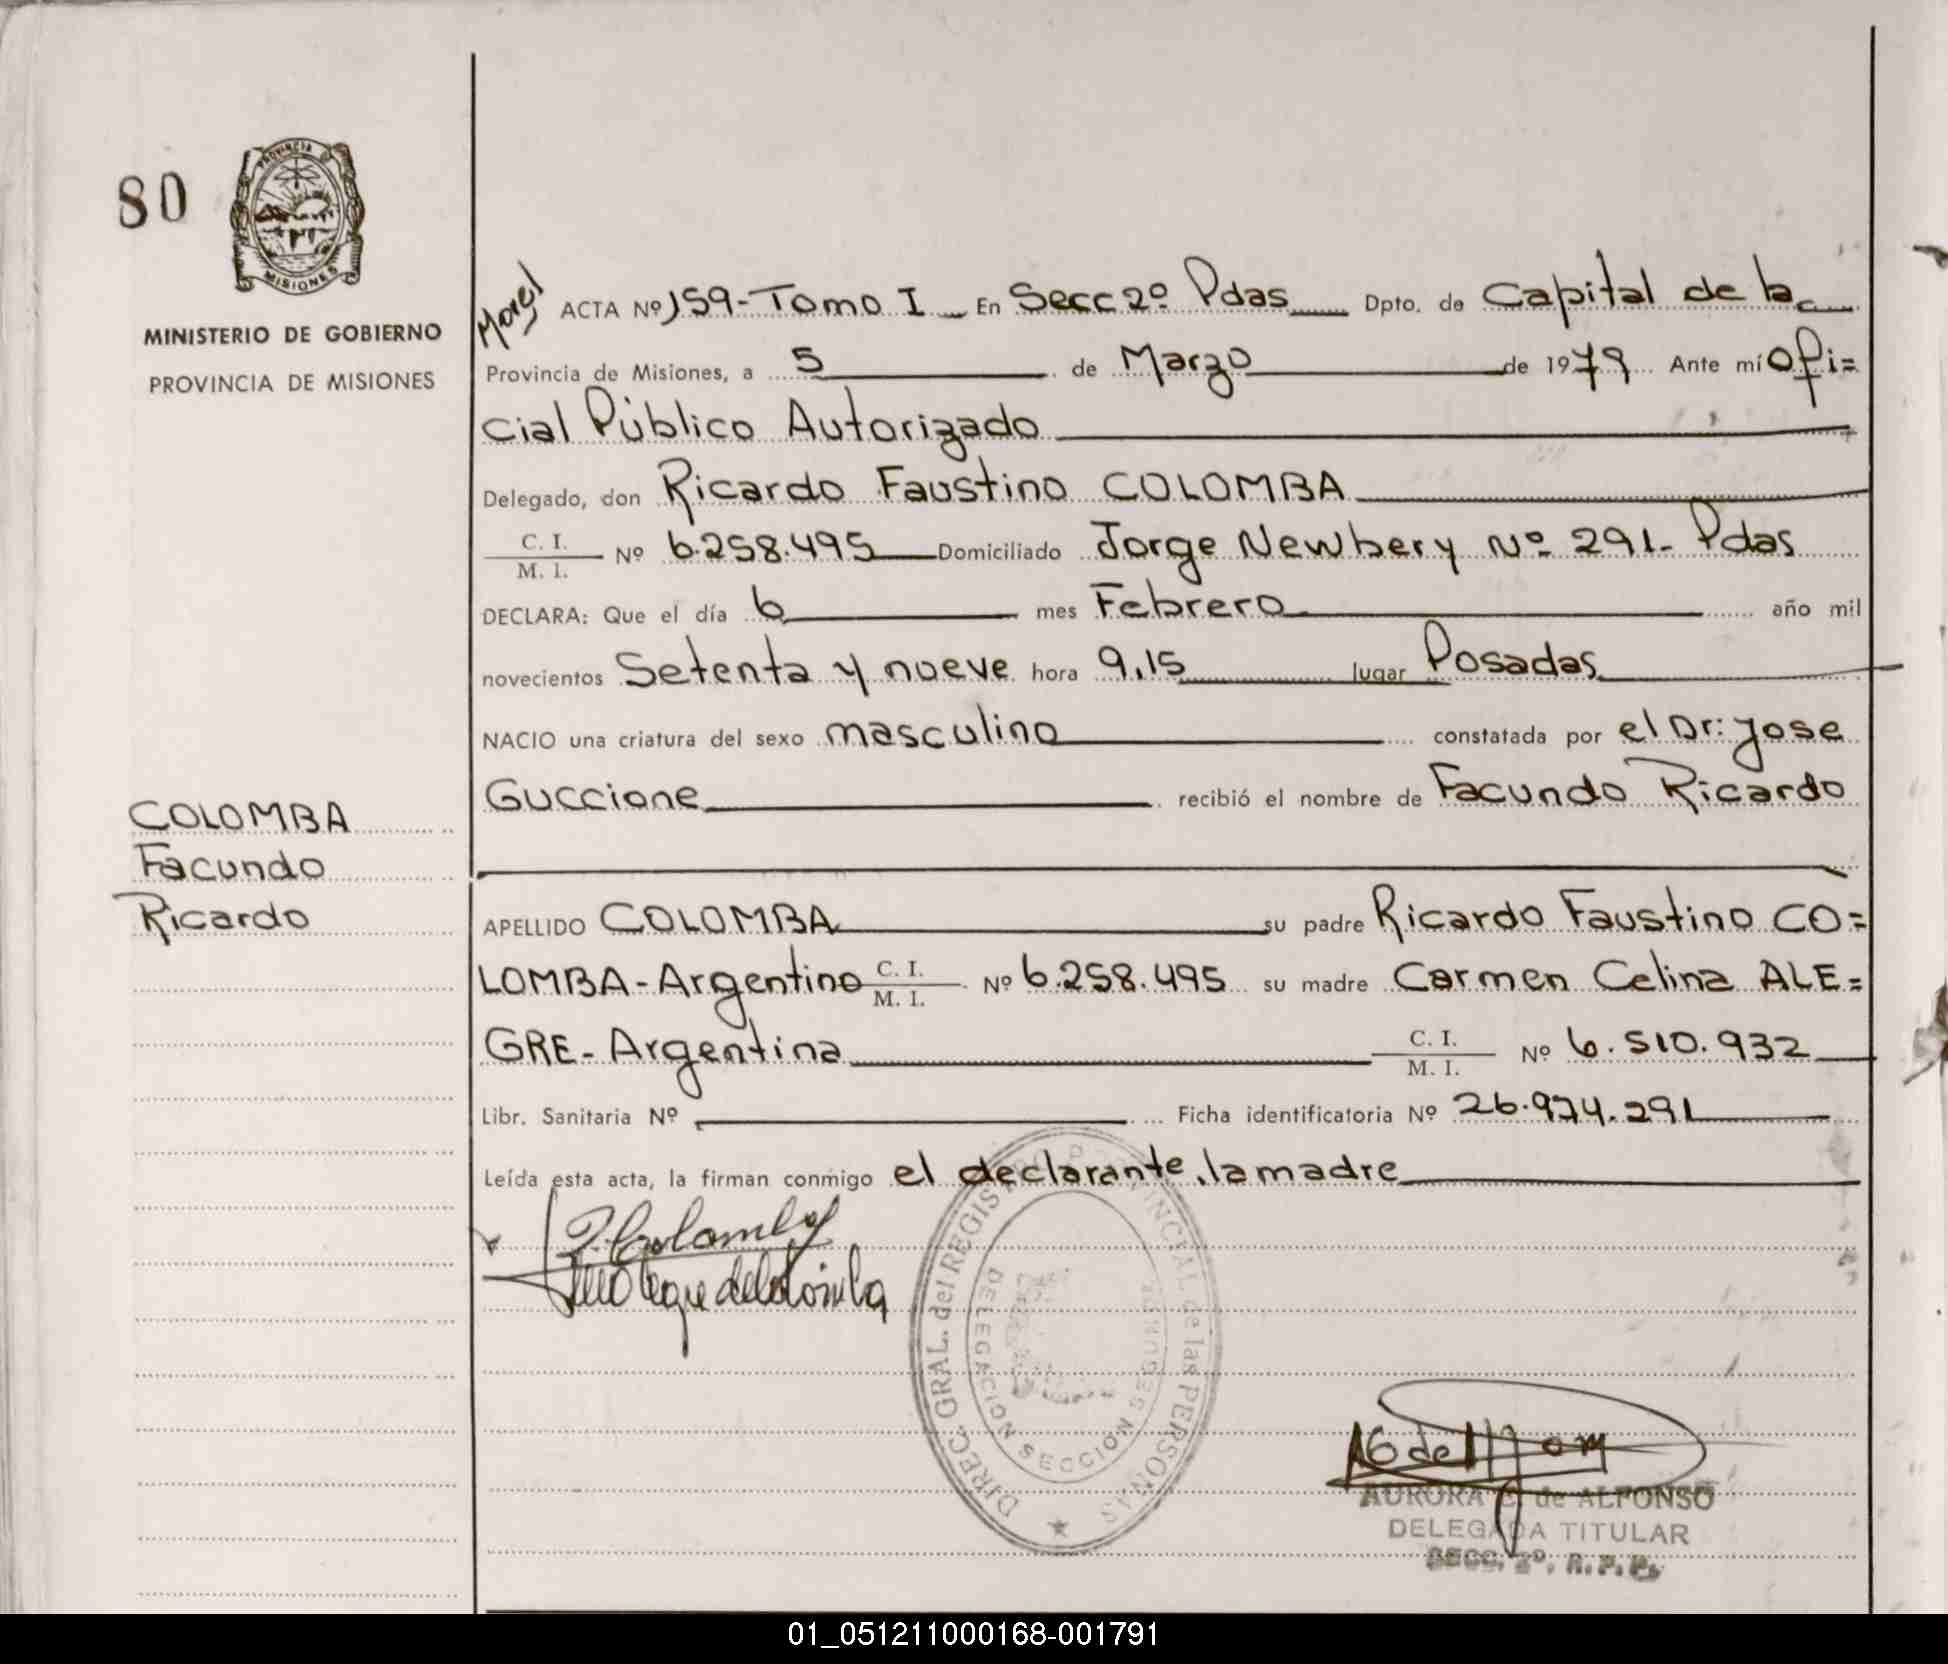 80
PROVINCIA DE
MISIONES
MINISTERIO DE GOBIERNO
PROVINCIA DE MISIONES
ACTA Nº 159-Tomo I En Secc 2º Pdas Dpto. de Capital de la
Provincia de Misiones, a 5 de Marzo de 1979 Ante mí Ofi=
cial Público Autorizado
Delegado, don Ricardo Faustino COLOMBA
C. I.
M. I. Nº 6.258.495 Domiciliado Jorge Newbery Nº 291- Pdas
DECLARA: Que el día 6 mes Febrero año mil
novecientos Setenta y nueve hora 9,15 lugar Posadas
NACIO una criatura del sexo masculino constatada por el Dr: Jose
Guccione recibió el nombre de Facundo Ricardo
COLOMBA
Facundo
Ricardo
APELLIDO COLOMBA su padre Ricardo Faustino CO=
LOMBA-Argentino C. I. M. I. Nº 6.258.495 su madre Carmen Celina ALE=
GRE- Argentina C. I. M. I. Nº 6.510.932
Libr. Sanitaria Nº Ficha identificatoria Nº 26.974.291
Leída esta acta, la firman conmigo el declarante, la madre
DIREC. GRAL. del REGISTRO PROVINCIAL de las PERSONAS
DELEGACION SECCION SEGUNDA
AURORA G. de ALFONSO
DELEGADA TITULAR
SECC. 2º. R. P. P.
01_051211000168-001791